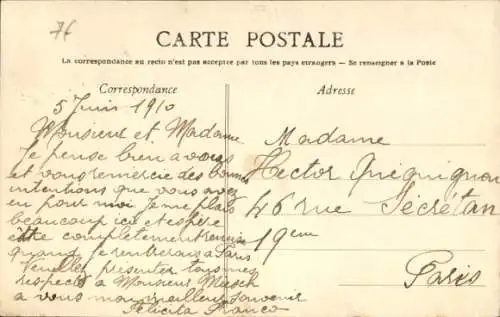 76
CARTE POSTALE
La correspondance au recto n'est pas acceptée par tous les pays étrangers — Se renseigner à la Poste
Correspondance
Adresse
5 Juin 1910
Monsieur et Madame
Je pense bien a vous
et vous remercie des bonnes
intentions que vous avez
eu pour moi je me plais
beaucoup ici et espère
être completement remise
quand je rentrerais a Paris
Veuillez présenter tous mes
respects a Monsieur
a vous mon meilleur Souvenir
Felicita Franco
Madame
Hector
46 Rue Sécrétan
19em
Paris